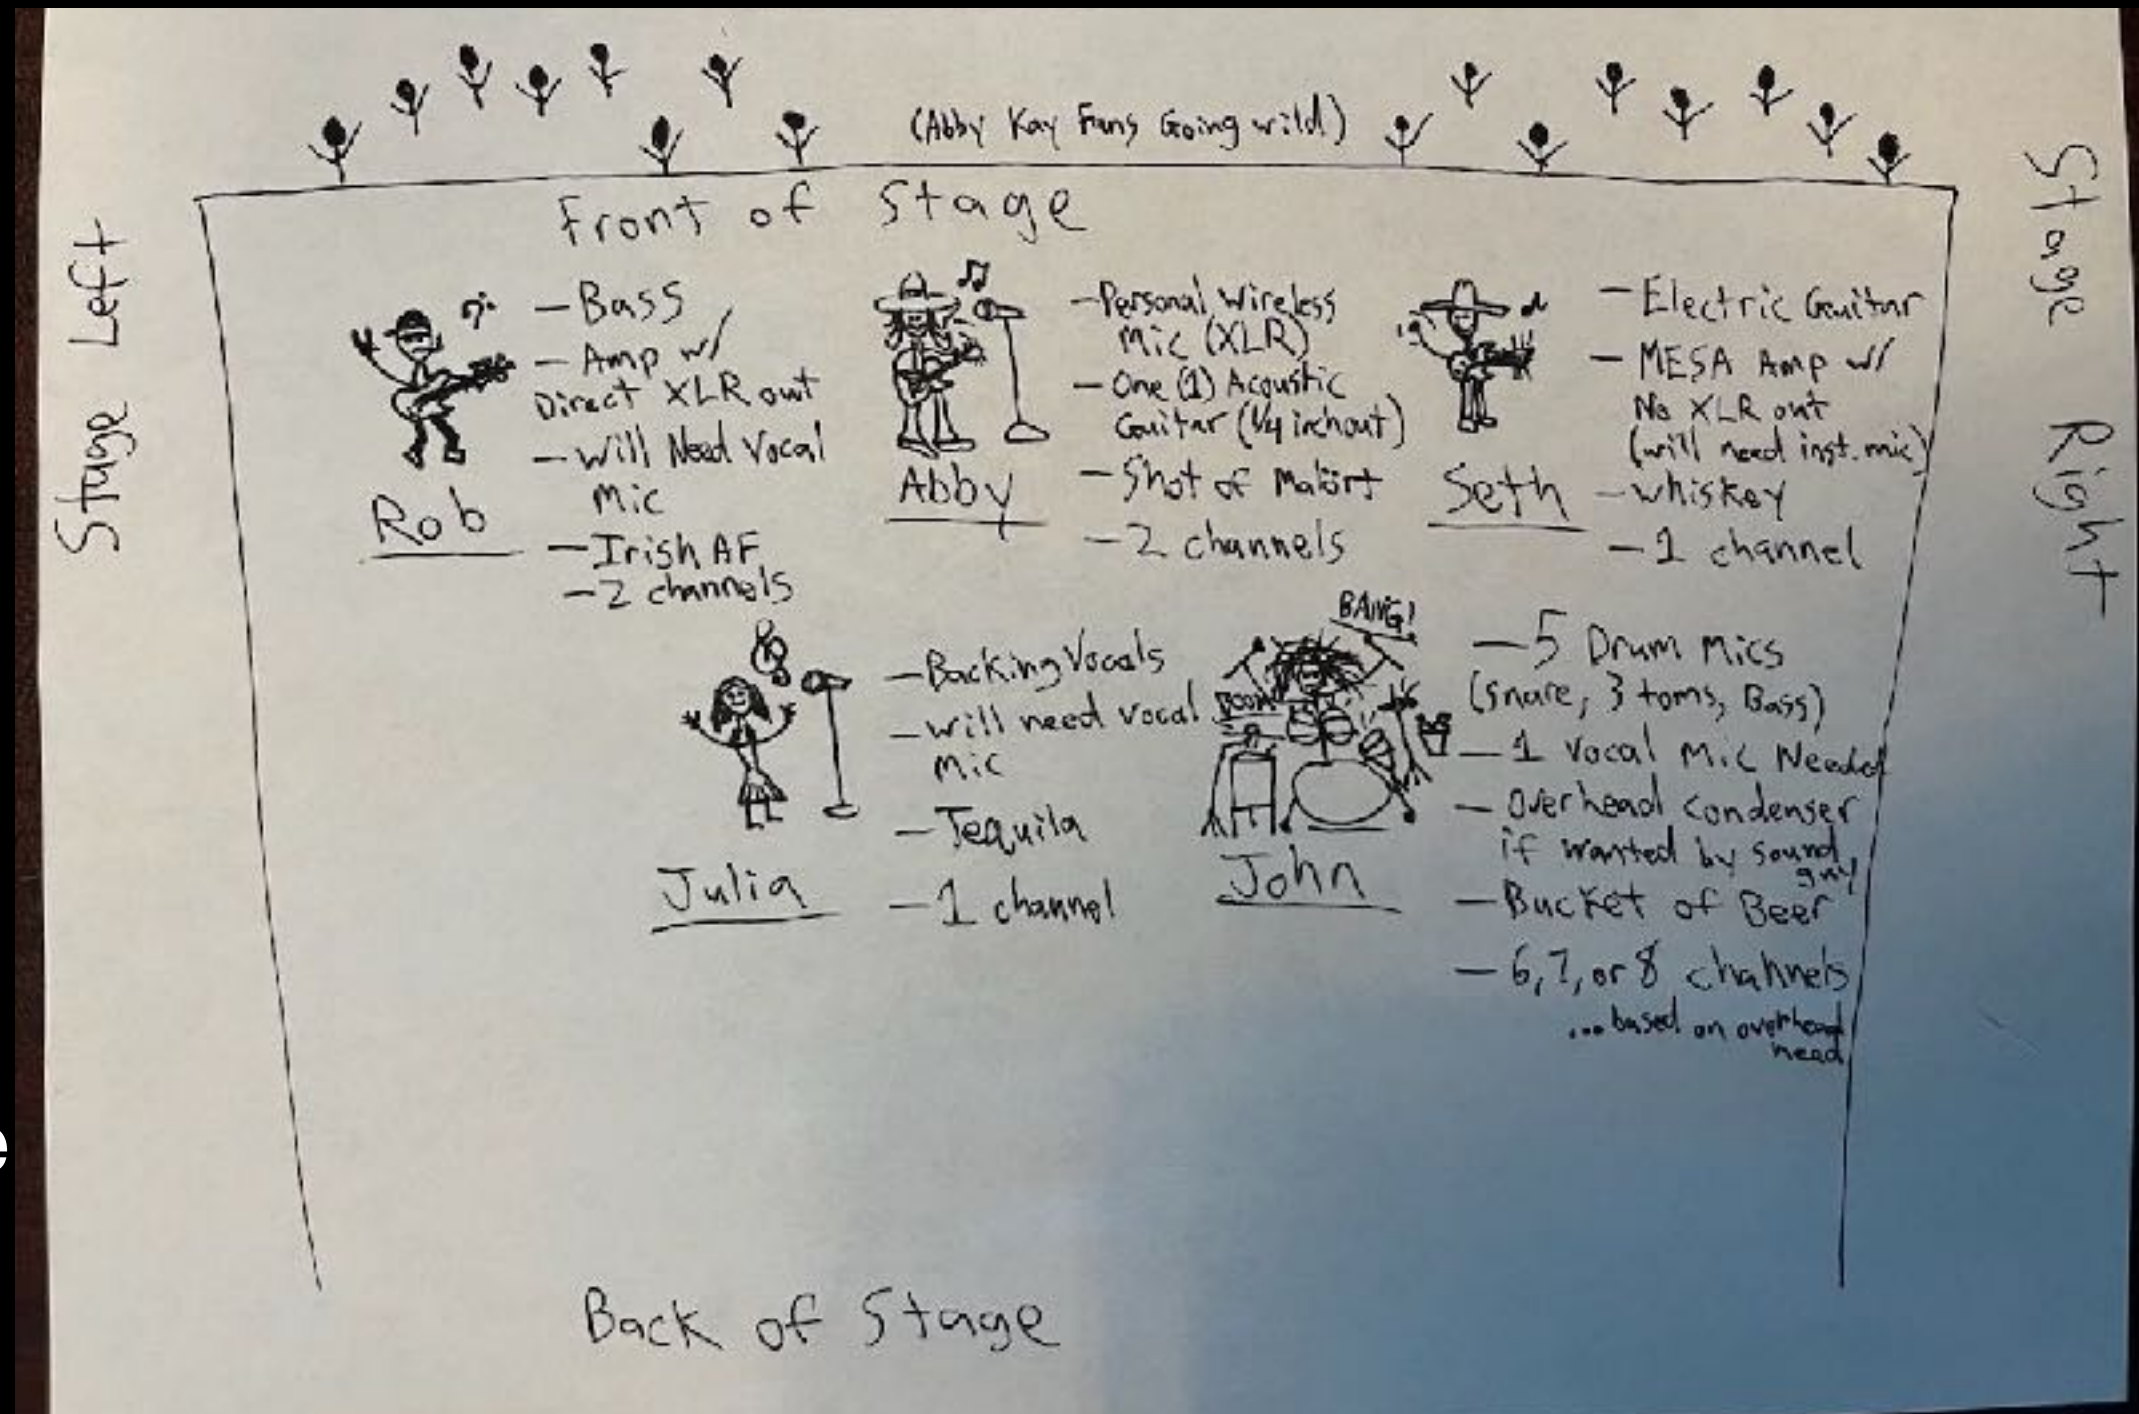 (Abby Kay Fans Going wild)
Front of Stage
Stage Left
Stage Right
- Bass
- Amp w/
Direct XLR out
- Will Need Vocal
Mic
- Irish AF
- 2 channels
Rob
- Personal Wireless
Mic (XLR)
- One (1) Acoustic
Guitar (1/4 inch out)
- Shot of Malört
- 2 channels
Abby
- Electric Guitar
- MESA Amp w/
No XLR out
(will need inst. mic)
- whiskey
- 1 channel
Seth
- Backing Vocals
- will need vocal
Mic
- Tequila
- 1 channel
Julia
BANG!
BOOM!
- 5 Drum Mics
(snare, 3 toms, Bass)
- 1 Vocal Mic Needed
- Overhead condenser
if wanted by sound
guy
- Bucket of Beer
- 6, 7, or 8 channels
... based on overhead
need
John
Back of Stage
e